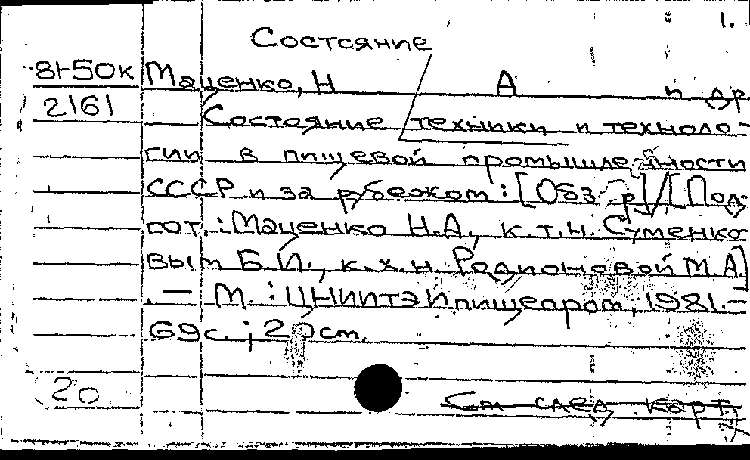 1.
Состояние
81-50к Маценко, Н А и др
2161 Состояние техники и техноло-
гии в пищевой промышленности
СССР и за рубежом : [Обзор] / [Под-
гот. : Маценко Н.А., к.т.н. Суменко-
вым Б.И., к.х.н. Родионовой М.А.]
. — М. : ЦНИИТЭИпищепром, 1981. –
69с. ; 20см.
20
См след. карт.